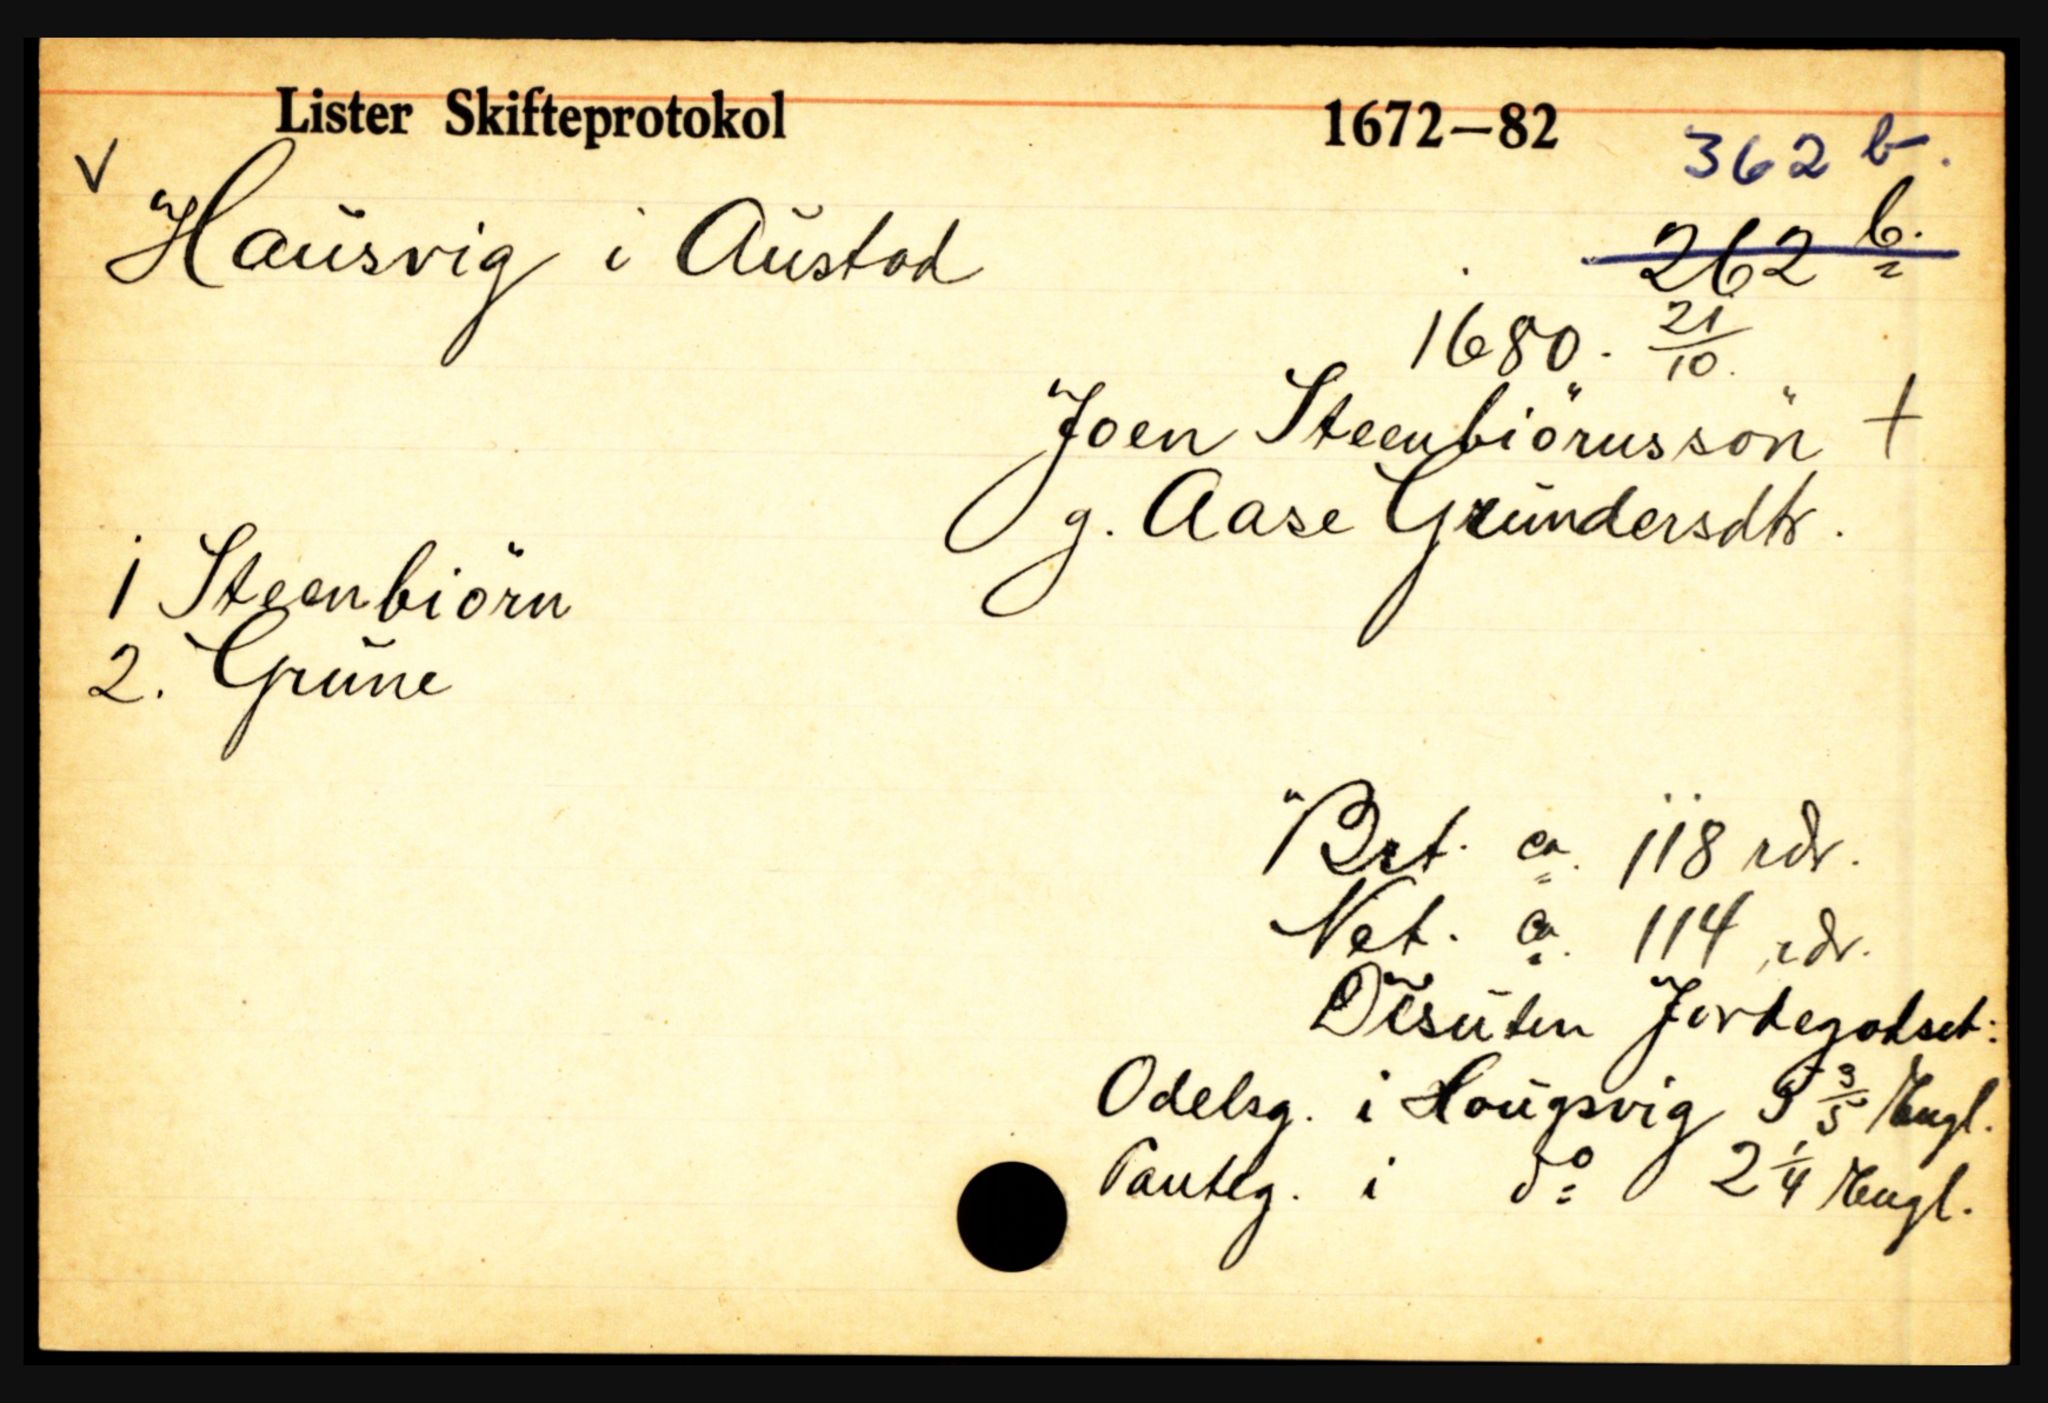 Lister Skifteprotokol 1672–82
362 b.
V
Hausvig i Austad
262 b.
1680. 21/10.
Joen Steenbiörnssön +
g. Aase Grundersdtr.
1 Steenbiörn
2. Grune
Brt. ca. 118 rdr.
Net. ca. 114 rdr.
Desuten Jordegodset:
Odelsg. i Hougsvig 3 3/5 Engl.
Panteg. i do 2 1/4 Engl.